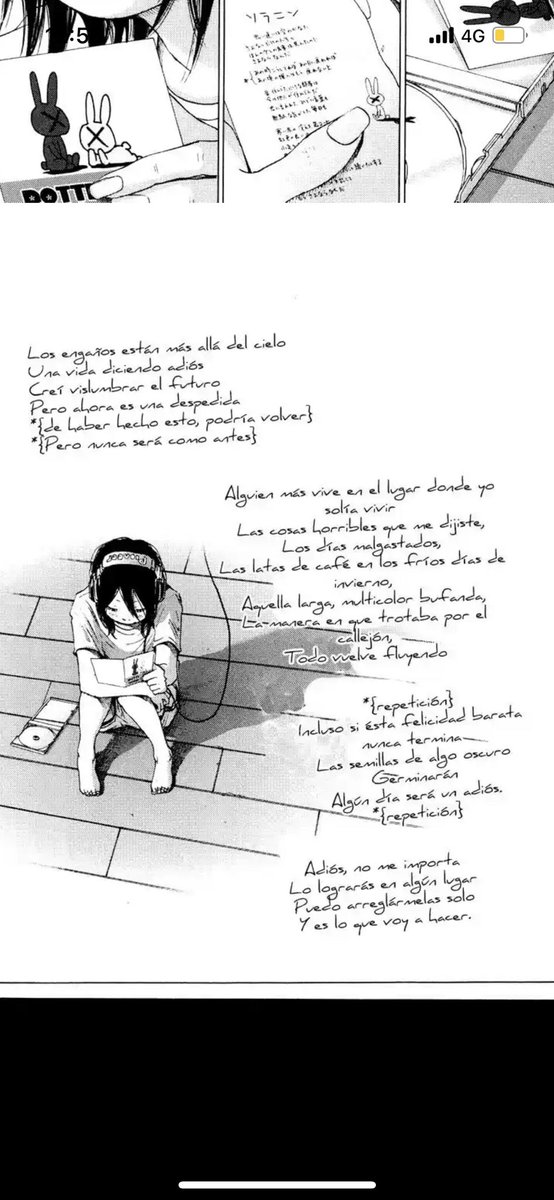 4G
ROTTI
ソラニン
Los engaños están más allá del cielo
Una vida diciendo adiós
Creí vislumbrar el futuro
Pero ahora es una despedida
*{de haber hecho esto, podría volver}
*{Pero nunca será como antes}
Alguien más vive en el lugar donde yo
solía vivir
Las cosas horribles que me dijiste,
Los días malgastados,
Las latas de café en los fríos días de
invierno,
Aquella larga, multicolor bufanda,
La manera en que trotaba por el
callejón,
Todo vuelve fluyendo
*{repetición}
Incluso si ésta felicidad barata
nunca termina
Las semillas de algo oscuro
Germinarán
Algún día será un adiós.
*{repetición}
Adiós, no me importa
Lo lograrás en algún lugar
Puedo arreglármelas solo
Y es lo que voy a hacer.